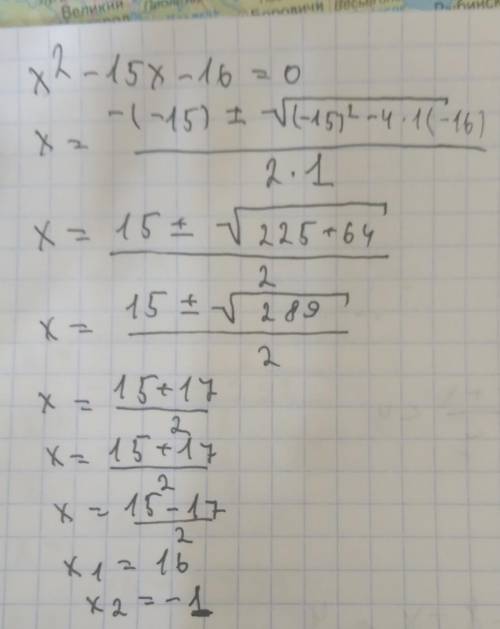 Великий
x² - 15x - 16 = 0
x = (-(-15) ± √((-15)² - 4 · 1(-16))) / (2 · 1)
x = (15 ± √(225 + 64)) / 2
x = (15 ± √289) / 2
x = (15 + 17) / 2
x = (15 + 17) / 2
x = (15 - 17) / 2
x1 = 16
x2 = -1